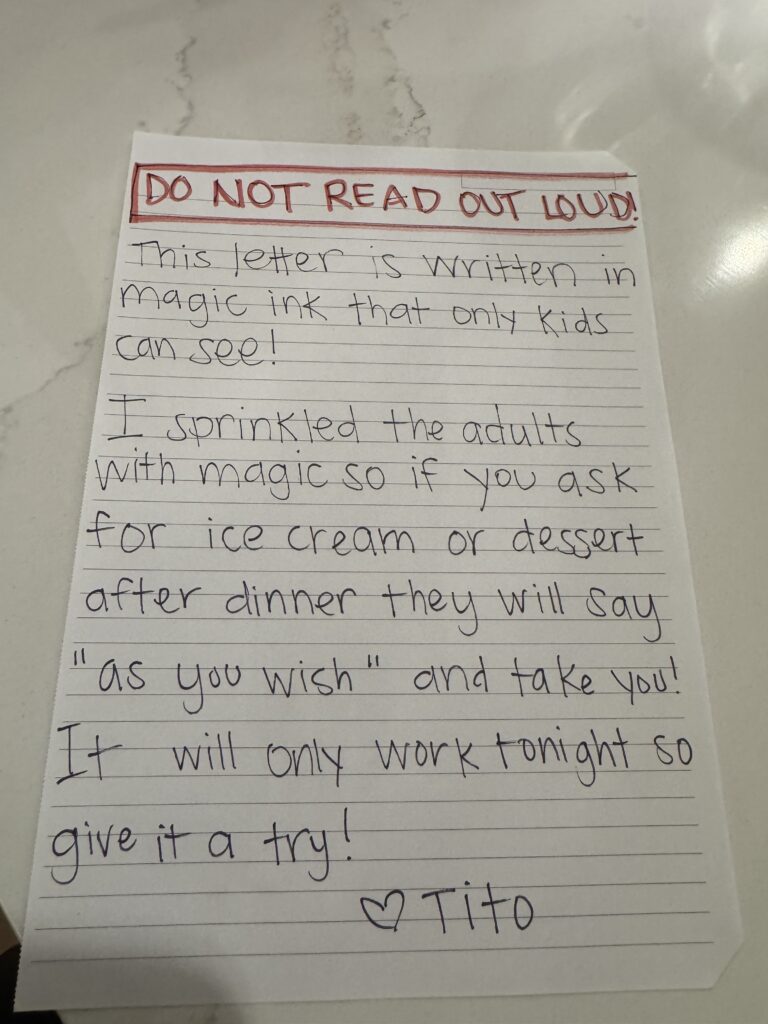 DO NOT READ OUT LOUD!
This letter is written in
magic ink that only kids
can see!
I sprinkled the adults
with magic so if you ask
for ice cream or dessert
after dinner they will say
"as you wish" and take you!
It will only work tonight so
give it a try!
♡ Tito